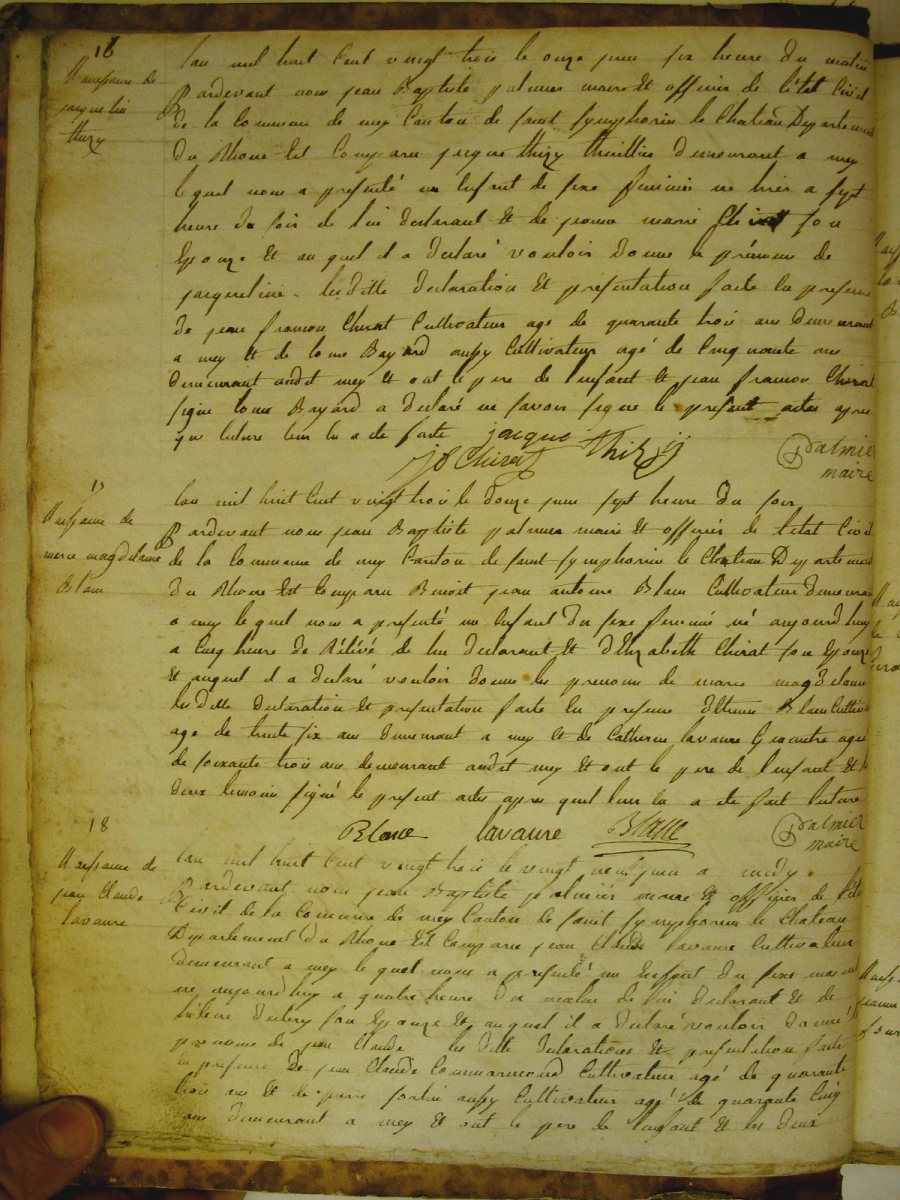 18
Naissance de
jacqueline
thizy
lan mil huit Cent vingt trois le onze juin six heure du matin
Pardevant nous jean Baptiste palmier maire Et officier de létat Civil
de la Commune de mey Canton de saint symphorien le Chateau Departement
Du Rhone Est Comparu jacque thizy demeurant a mey
lequel nous a presenté un Enfant de sexe feminin né hier a sept
heure du soir de lui declarant Et de jeanne marie Chirat son
Epouze Et au quel il a declaré vouloir donne le prénome de
jacqueline. lesditte declaration Et presentation faite En presence
de jean francou Chirat Cultivateur age de quarante trois ans demeurant
a mey Et de louis Bayard aussy Cultivateur agé de Cinquante ans
demeurant audit mey Et ont le pere de lenfant Et jean francou Chirat
signe louis Bayard a declaré ne savoir signe le present actes apres
que lecture leur En a ete faite jacque thizy
Chirat palmier
maire
17
Naissance de
marie magdelaine
Blanc
lan mil huit Cent vingt trois le douze juin sept heure du soir
Pardevant nous jean Baptiste palmier maire Et officier de letat Civil
de la Commune de mey Canton de saint symphorien le Chateau Departement
du Rhone Est Comparu Benoit jean antoine Blanc Cultivateur demeurant
a mey lequel nous a presenté un Enfant du sexe feminin né aujourdhuy
a Cinq heure de de lui declarant Et dElizabeth Chirat son Epouze
Et auquel il a declaré vouloir donne les prenoms de marie magdelaine
lesditte declaration Et presentation faite En presence dEtienne Blanc Cultivateur
age de trente six ans demeurant a mey Et de Catherin lavaure Geometre age
de soixante trois ans demeurant audit mey Et ont le pere de lenfant Et les
deux temoins signé le present actes apres quel leur En a ete fait lecture
Blanc lavaure Blanc palmier
maire
18
Naissance de
jean Claude
lavaure
lan mil huit Cent vingt trois le vingt neuf juin a midy
Pardevant nous jean Baptiste palmier maire Et officier de létat
Civil de la Commune de mey Canton de saint symphorien le Chateau
Departement du Rhone Est Comparu jean Claude lavaure Cultivateur
demeurant a mey lequel nous a presenté un Enfant du sexe masculin
né aujourdhuy a quatre heure du matin de lui declarant Et de
son Epouze Et auquel il a declaré vouloir donné
prenoms de jean Claude lesditte declarations Et presentation faite
En presence de jean Claude Commarmond Cultivateur agé de quarante
trois ans Et de aussy Cultivateur agé de quarante Cinq
ans demeurant a mey Et ont le pere de lenfant Et les deux